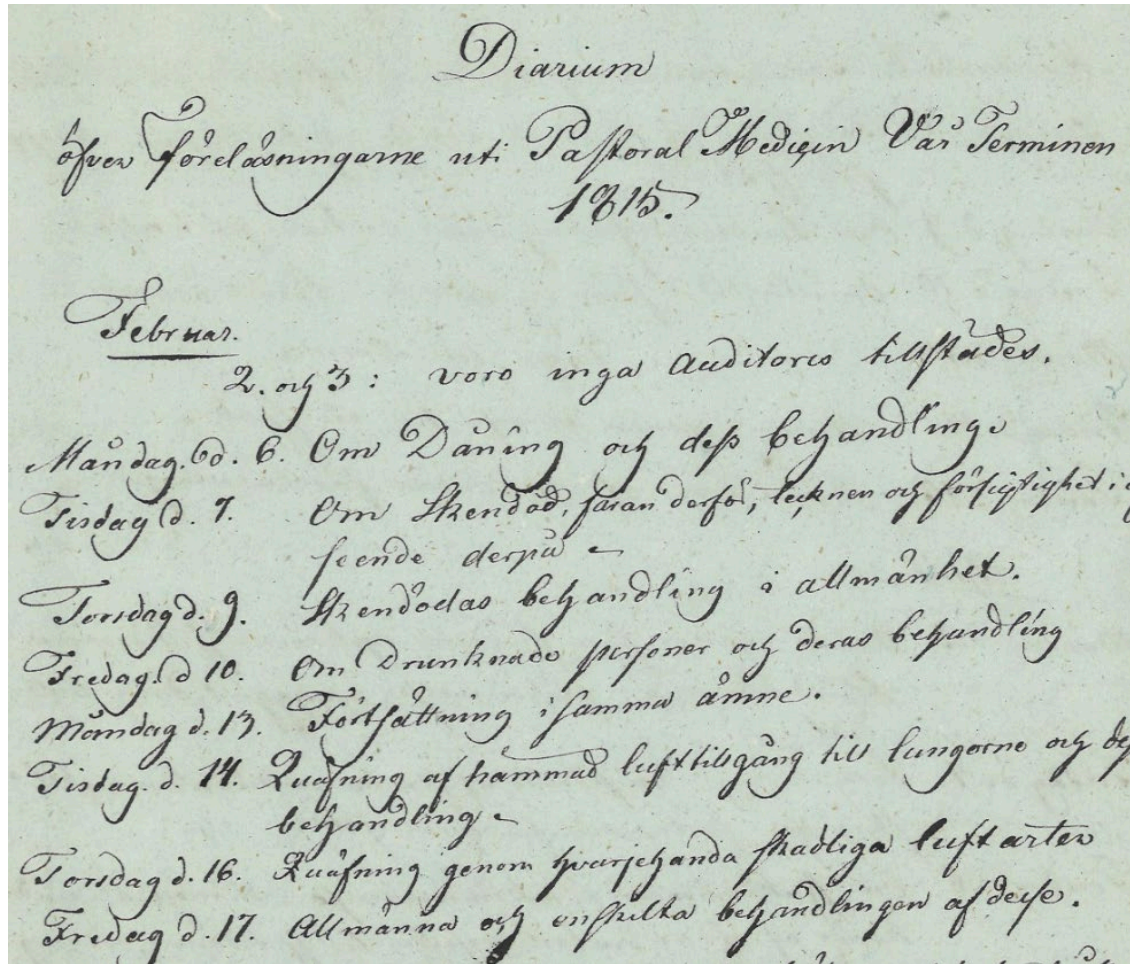 Diarium
öfver Föreläsningarne uti Pastoral Medicin Vår Terminen
1815.
Februar.
2. och 3: voro inga Auditores tillstädes.
Måndag. d. 6. Om Dåning och dess behandling.
Tisdag d. 7. Om Skendöd, faran derför, tecknen och försigtighet i
seende derpå
Torsdag d. 9. Skendödas behandling i allmänhet.
Fredag. d 10. Om Drunknade personer och deras behandling
Måndag d. 13. Fortsättning i samma ämne.
Tisdag. d. 14. Quäfning af hämmad lufttillgång till lungorne och
behandling.
Torsdag d. 16. Quäfning genom hvarjehanda skadliga luftarter
Fredag d. 17. Allmänna och enskilta behandlingen af desse.